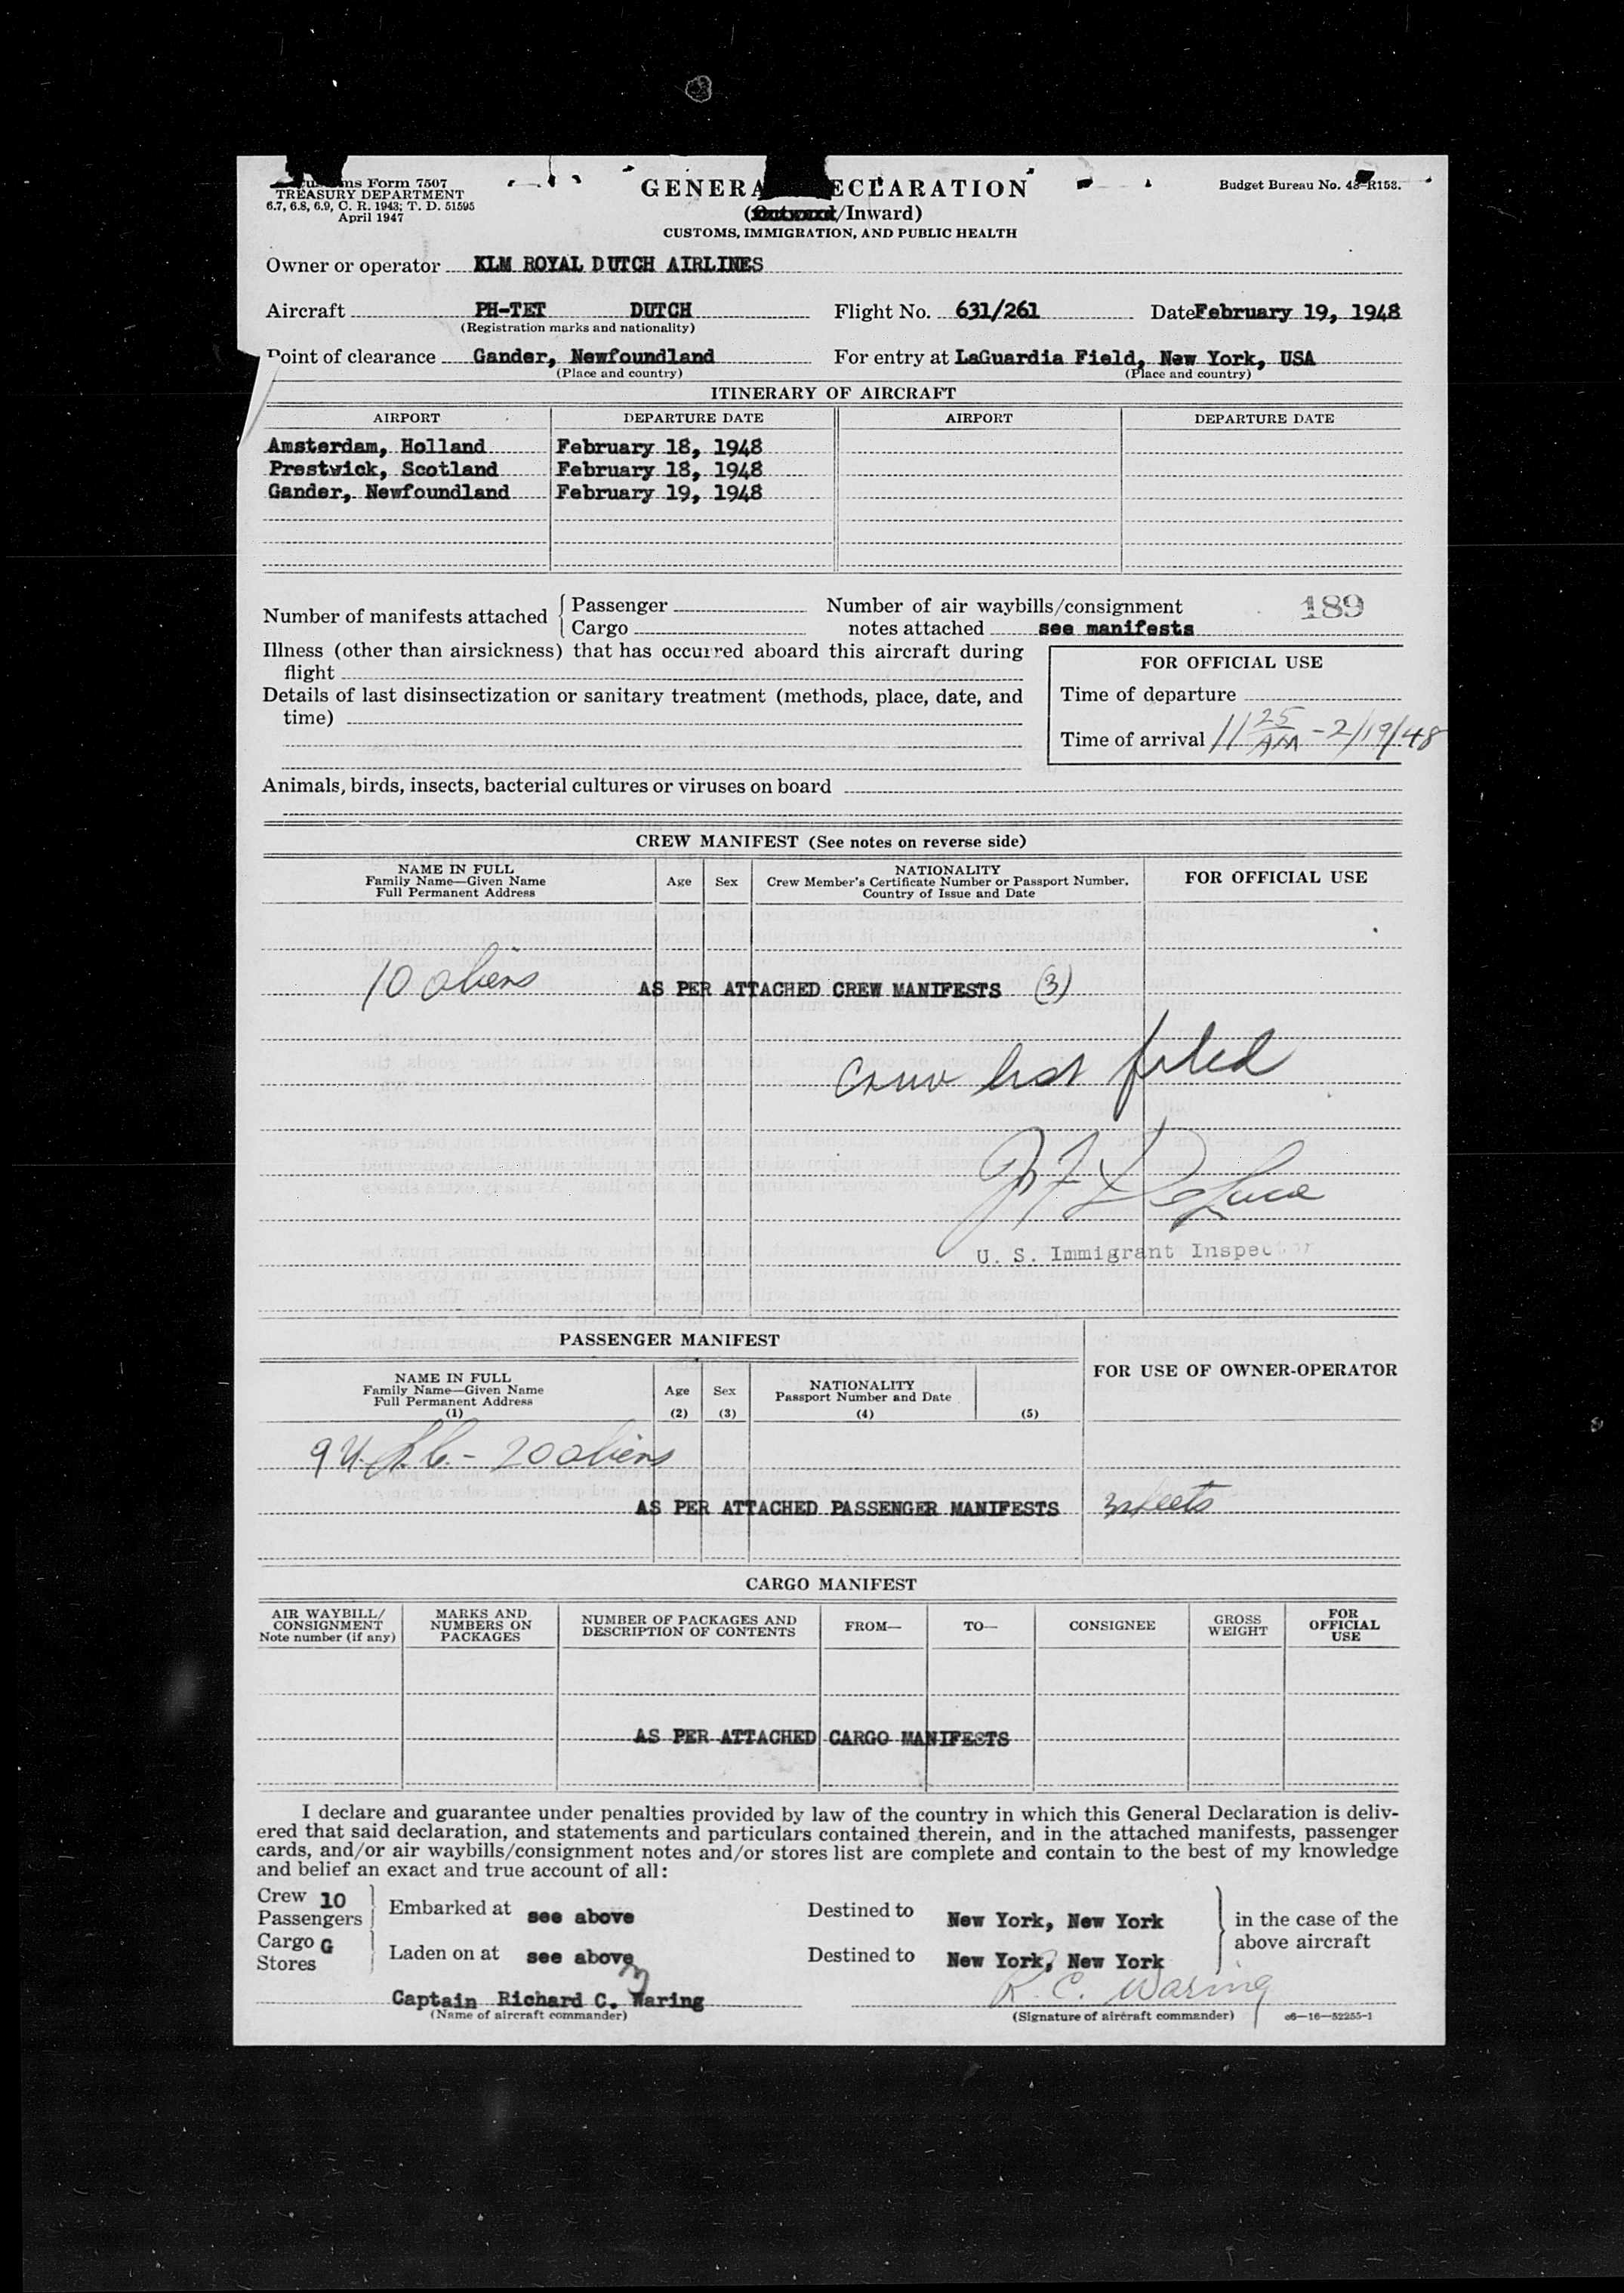 Customs Form 7507
TREASURY DEPARTMENT
6.7, 6.8, 6.9, C. R. 1943; T. D. 51595
April 1947
GENERAL DECLARATION
(Outward/Inward)
CUSTOMS, IMMIGRATION, AND PUBLIC HEALTH
Budget Bureau No. 48-R153.
Owner or operator KLM ROYAL DUTCH AIRLINES
Aircraft PH-TET DUTCH Flight No. 631/261 Date February 19, 1948
(Registration marks and nationality)
Point of clearance Gander, Newfoundland For entry at LaGuardia Field, New York, USA
(Place and country) (Place and country)
ITINERARY OF AIRCRAFT
AIRPORT DEPARTURE DATE AIRPORT DEPARTURE DATE
Amsterdam, Holland February 18, 1948
Prestwick, Scotland February 18, 1948
Gander, Newfoundland February 19, 1948
Number of manifests attached { Passenger
Cargo
Number of air waybills/consignment
notes attached see manifests
189
Illness (other than airsickness) that has occurred aboard this aircraft during
flight
Details of last disinsectization or sanitary treatment (methods, place, date, and
time)
FOR OFFICIAL USE
Time of departure
Time of arrival 11 25 AM - 2/19/48
Animals, birds, insects, bacterial cultures or viruses on board
CREW MANIFEST (See notes on reverse side)
NAME IN FULL
Family Name—Given Name
Full Permanent Address
Age
Sex
NATIONALITY
Crew Member's Certificate Number or Passport Number,
Country of Issue and Date
FOR OFFICIAL USE
10 aliens AS PER ATTACHED CREW MANIFESTS (3)
crew list filed
DeLuca
U. S. Immigrant Inspector
PASSENGER MANIFEST
NAME IN FULL
Family Name—Given Name
Full Permanent Address
(1)
Age
(2)
Sex
(3)
NATIONALITY
Passport Number and Date
(4) (5)
FOR USE OF OWNER-OPERATOR
9 U.S.C. - 20 aliens
AS PER ATTACHED PASSENGER MANIFESTS 3 sheets
CARGO MANIFEST
AIR WAYBILL/
CONSIGNMENT
Note number (if any)
MARKS AND
NUMBERS ON
PACKAGES
NUMBER OF PACKAGES AND
DESCRIPTION OF CONTENTS
FROM—
TO—
CONSIGNEE
GROSS
WEIGHT
FOR
OFFICIAL
USE
AS PER ATTACHED CARGO MANIFESTS
I declare and guarantee under penalties provided by law of the country in which this General Declaration is deliv-
ered that said declaration, and statements and particulars contained therein, and in the attached manifests, passenger
cards, and/or air waybills/consignment notes and/or stores list are complete and contain to the best of my knowledge
and belief an exact and true account of all:
Crew 10
Passengers
Embarked at see above Destined to New York, New York
Cargo G
Stores
Laden on at see above Destined to New York, New York
in the case of the
above aircraft
Captain Richard C. Waring R. C. Waring
(Name of aircraft commander) (Signature of aircraft commander) c6—16—52255-1